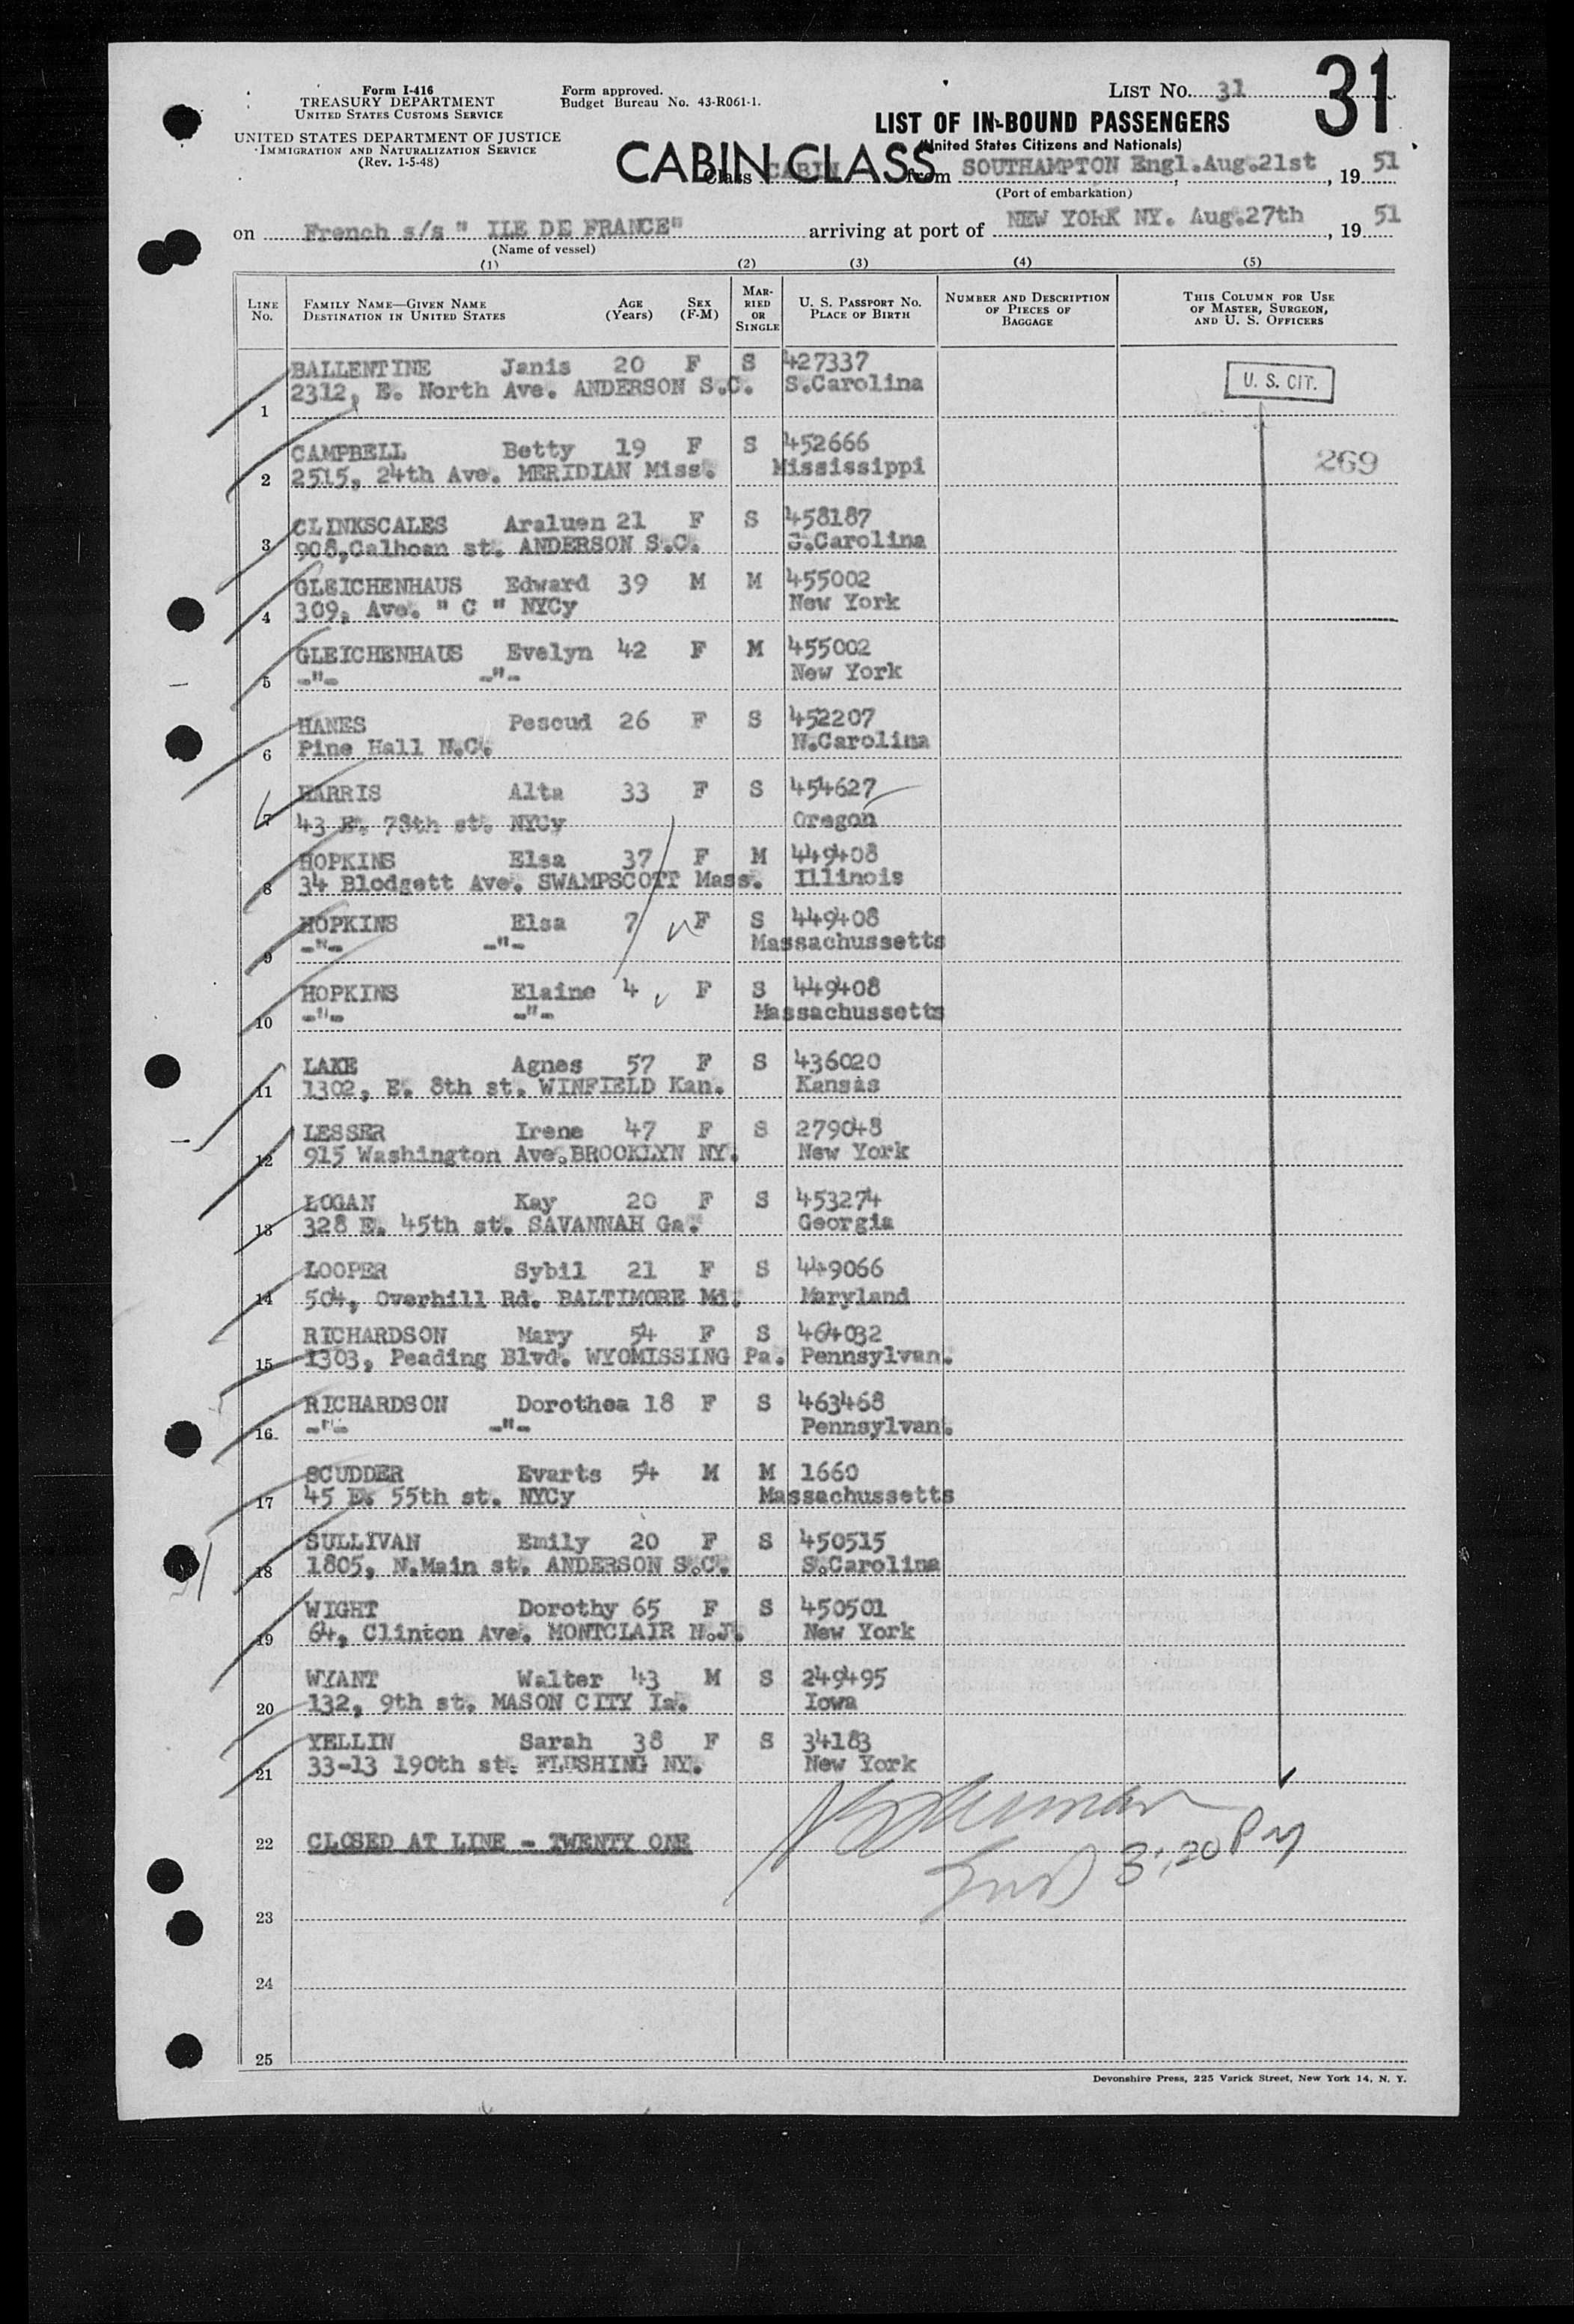 Form I-416
TREASURY DEPARTMENT
UNITED STATES CUSTOMS SERVICE
UNITED STATES DEPARTMENT OF JUSTICE
IMMIGRATION AND NATURALIZATION SERVICE
(Rev. 1-5-48)
Form approved.
Budget Bureau No. 43-R061-1.
LIST No. 31
31
LIST OF IN-BOUND PASSENGERS
(United States Citizens and Nationals)
CABIN CLASS
Class CABIN from SOUTHAMPTON Engl. Aug. 21st, 1951
(Port of embarkation)
on French s/s " ILE DE FRANCE" arriving at port of NEW YORK NY. Aug. 27th, 1951
(Name of vessel)
(1) (2) (3) (4) (5)
LINE No. FAMILY NAME—GIVEN NAME DESTINATION IN UNITED STATES AGE (Years) SEX (F-M) MARRIED OR SINGLE U. S. PASSPORT NO. PLACE OF BIRTH NUMBER AND DESCRIPTION OF PIECES OF BAGGAGE THIS COLUMN FOR USE OF MASTER, SURGEON, AND U. S. OFFICERS
BALLENTINE Janis 20 F S 427337
1 2312, E. North Ave. ANDERSON S.C. S.Carolina
U. S. CIT.
CAMPBELL Betty 19 F S 452666
2 2515, 24th Ave. MERIDIAN Miss. Mississippi
269
CLINKSCALES Araluen 21 F S 458187
3 908,Calhoan st. ANDERSON S.C. S.Carolina
GLEICHENHAUS Edward 39 M M 455002
4 309, Ave. " C " NYCy New York
GLEICHENHAUS Evelyn 42 F M 455002
5 -"- -"- New York
HANES Pescud 26 F S 452207
6 Pine Hall N.C. N.Carolina
HARRIS Alta 33 F S 454627
7 43 E. 78th st. NYCy Oregon
HOPKINS Elsa 37 F M 449408
8 34 Blodgett Ave. SWAMPSCOTT Mass. Illinois
HOPKINS Elsa 7 F S 449408
9 -"- -"- Massachussetts
HOPKINS Elaine 4 F S 449408
10 -"- -"- Massachussetts
LAKE Agnes 57 F S 436020
11 1302, E. 8th st. WINFIELD Kan. Kansas
LESSER Irene 47 F S 279048
12 915 Washington Ave.BROOKLYN NY. New York
LOGAN Kay 20 F S 453274
13 328 E. 45th st. SAVANNAH Ga. Georgia
LOOPER Sybil 21 F S 449066
14 504, Overhill Rd. BALTIMORE Md. Maryland
RICHARDSON Mary 54 F S 464032
15 1303, Peading Blvd. WYOMISSING Pa. Pennsylvan.
RICHARDSON Dorothea 18 F S 463468
16 -"- -"- Pennsylvan.
SCUDDER Evarts 54 M M 1660
17 45 E. 55th st. NYCy Massachussetts
SULLIVAN Emily 20 F S 450515
18 1805, N.Main st. ANDERSON S.C. S.Carolina
WIGHT Dorothy 65 F S 450501
19 64, Clinton Ave. MONTCLAIR N.J. New York
WYANT Walter 43 M S 249495
20 132, 9th st. MASON CITY Ia. Iowa
YELLIN Sarah 38 F S 34183
21 33-13 190th st. FLUSHING NY. New York
22 CLOSED AT LINE - TWENTY ONE
3:20 PM
23
24
25
Devonshire Press, 225 Varick Street, New York 14, N. Y.